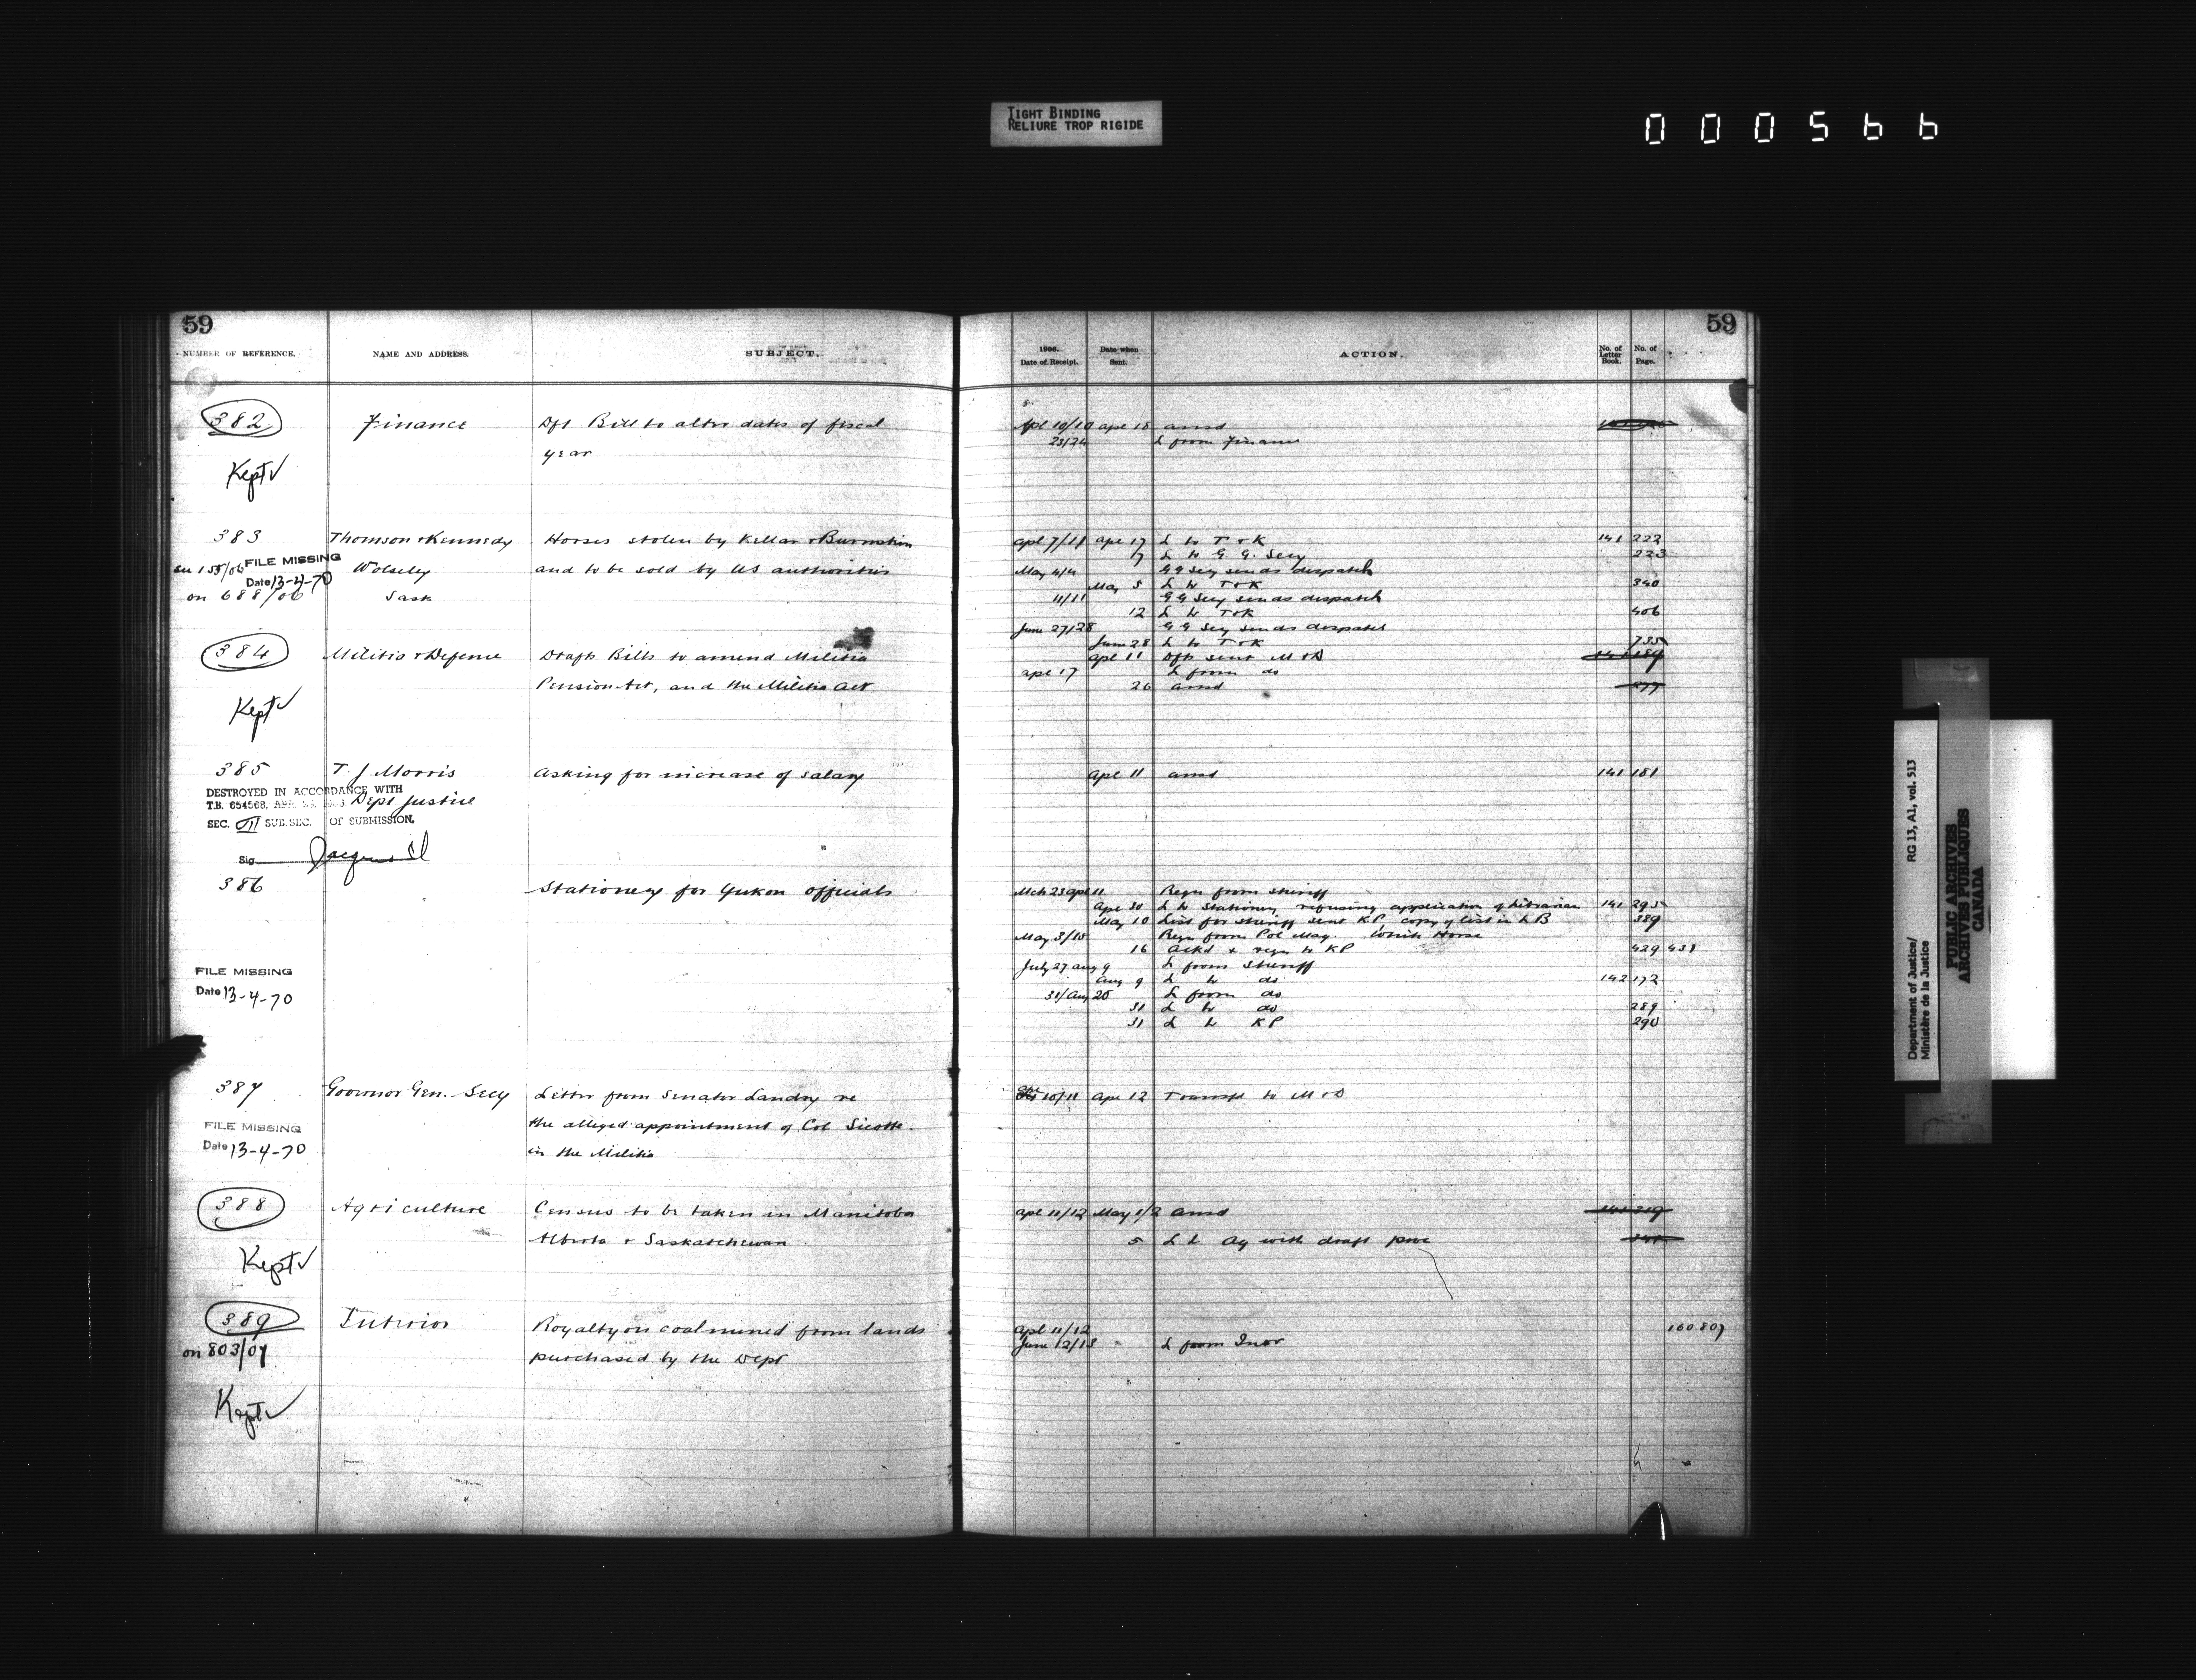 TIGHT BINDING
RELIURE TROP RIGIDE
000566
59
NUMBER OF REFERENCE. NAME AND ADDRESS. SUBJECT.
382 Finance Dft Bill to alter dates of fiscal
year
Kept ✓
383 Thomson & Kennedy Horses stolen by Kellar &
FILE MISSING
155/06 Wolseley and to be sold by US authorities
Date 13-4-70
on 688/06 Sask
384 Militia & Defence Draft Bills to amend Militia
Pension Act, and the Militia Act
Kept ✓
385 T. J. Morris Asking for increase of salary
DESTROYED IN ACCORDANCE WITH
T.B. 654568, Dept Justice
SEC. III SUB.SEC. OF SUBMISSION.
Sig
386 Stationery for Yukon officials
FILE MISSING
Date 13-4-70
387 Governor Gen. Secy Letter from Senator Landry re
the alleged appointment of Col Sicotte
FILE MISSING
Date 13-4-70 in the Militia
388 Agriculture Census to be taken in Manitoba
Alberta & Saskatchewan
Kept ✓
389 Interior Royalty on coal mined from lands
on 803/07 purchased by the Dept
Kept ✓
59
1906. Date of Receipt. Date when Sent. ACTION. No. of Letter Book. No. of Page.
Apl 10/10 Apl 18 ansd
23/24 L from Finance
Apl 7/11 Apl 17 L to T & K 141 222
17 L to G. G. Secy 223
May 4/4 G G Secy sends dispatch
May 5 L to T & K 340
11/11 G G Secy sends dispatch
12 L to T & K 406
June 27/28 G G Secy sends dispatch
June 28 L to T & K 735
Apl 11 Dfts sent M & D 141 189
Apl 17 L from do
26 ansd 277
Apl 11 ansd 141 181
Mch 23 Apl 11 Requ from sheriff
Apl 30 L to Stationery refusing application of Librarian 141 295
May 10 List for sheriff sent KP, copy of list in LB 389
May 3/15 Requ from Pol Mag. White Horse
16 Ackd & requ to KP 429 431
July 27 Aug 9 L from Sheriff
Aug 9 L to do 142 172
31/Aug 25 L from do
31 L to do 289
31 L to KP 290
Apl 10/11 Apl 12 Transfd to M & D
Apl 11/12 May 1/2 ansd 141 319
5 L to Ag with draft proc
Apl 11/12 160 807
June 12/13 L from Inor
Department of Justice/
Ministère de la Justice
RG 13, A1, vol. 513
PUBLIC ARCHIVES
ARCHIVES PUBLIQUES
CANADA